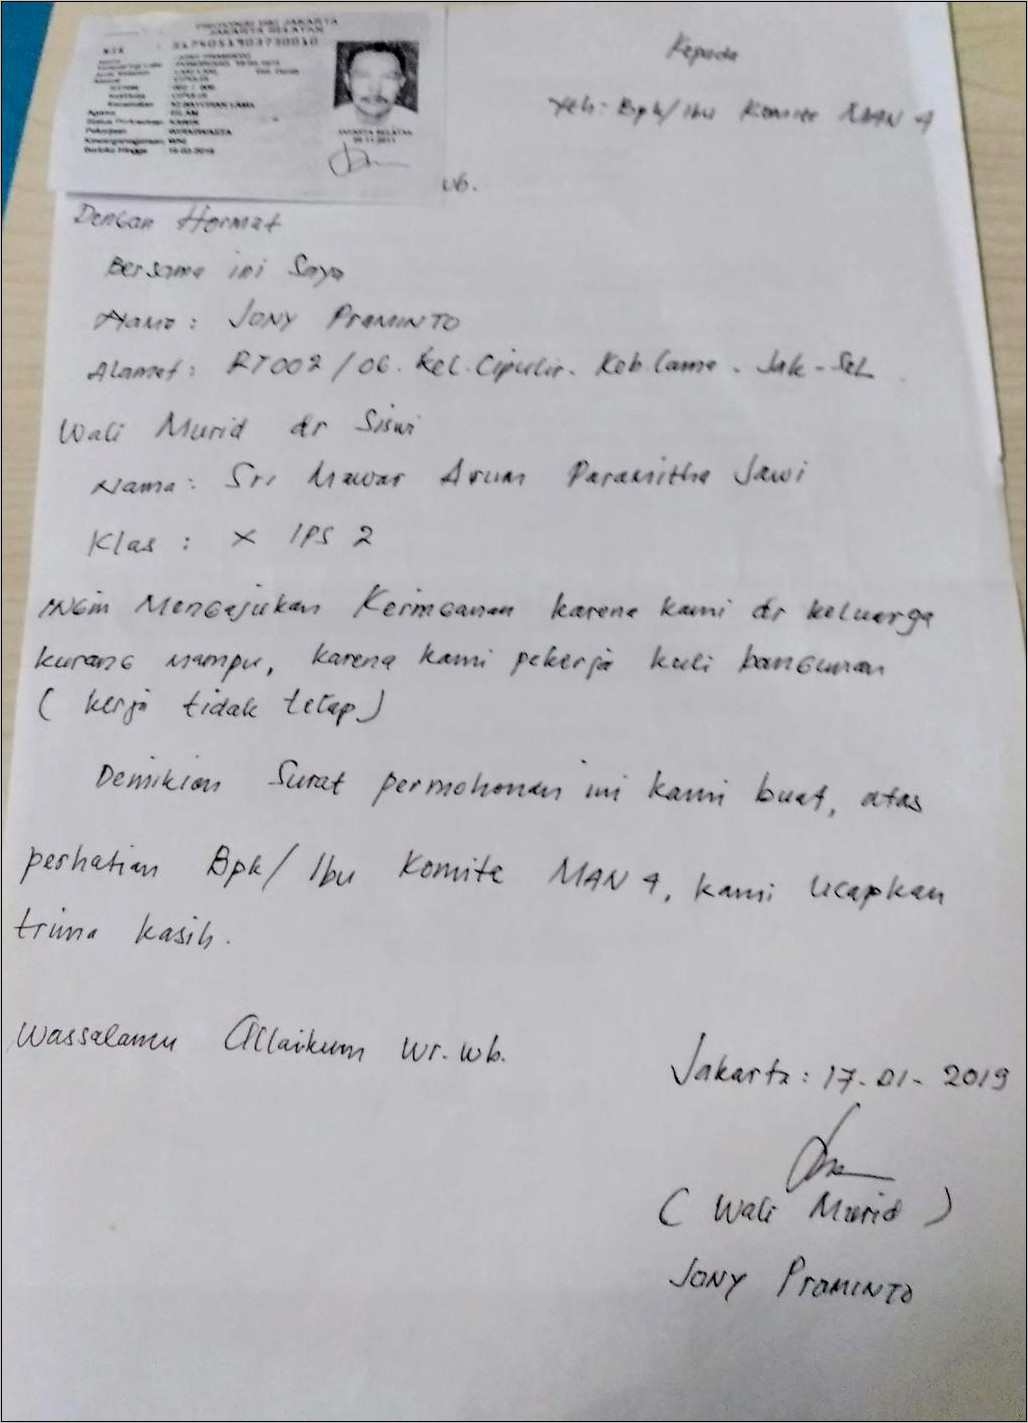 PROVINSI DKI JAKARTA
JAKARTA SELATAN
NIK
JAKARTA SELATAN
Kepada
Yth: Bpk/Ibu Komite MAN 4
wb.
Dengan Hormat
Bersama ini Saya
Nama : JONY PRAMINTO
Alamat : RT002/06. Kel. Cipulir. Keb. lama. Jak-Sel
Wali Murid dr Siswi
Nama : Sri Mawar Arum Paramitha Jawi
Klas : X IPS 2
INGin Mengajukan Keringanan karena kami dr keluarga
kurang mampu, karena kami pekerja kuli bangunan
( kerja tidak tetap)
Demikian Surat permohonan ini kami buat, atas
perhatian Bpk/ Ibu Komite MAN 4, kami ucapkan
trima kasih.
Wassalamu Allaikum wr. wb.
Jakarta : 17-01-2019
( Wali Murid )
JONY PRAMINTO